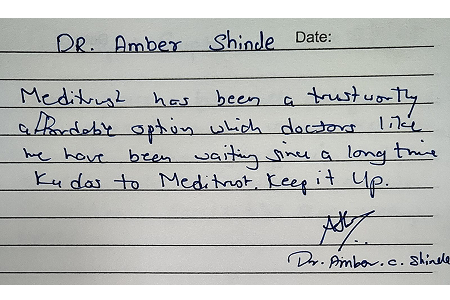 DR. Amber Shinde Date:
Meditrust has been a trustworthy
affordable option which doctors like
me have been waiting since a long time
Kudos to Meditrust. Keep it Up.
Dr. Amber. C. Shinde